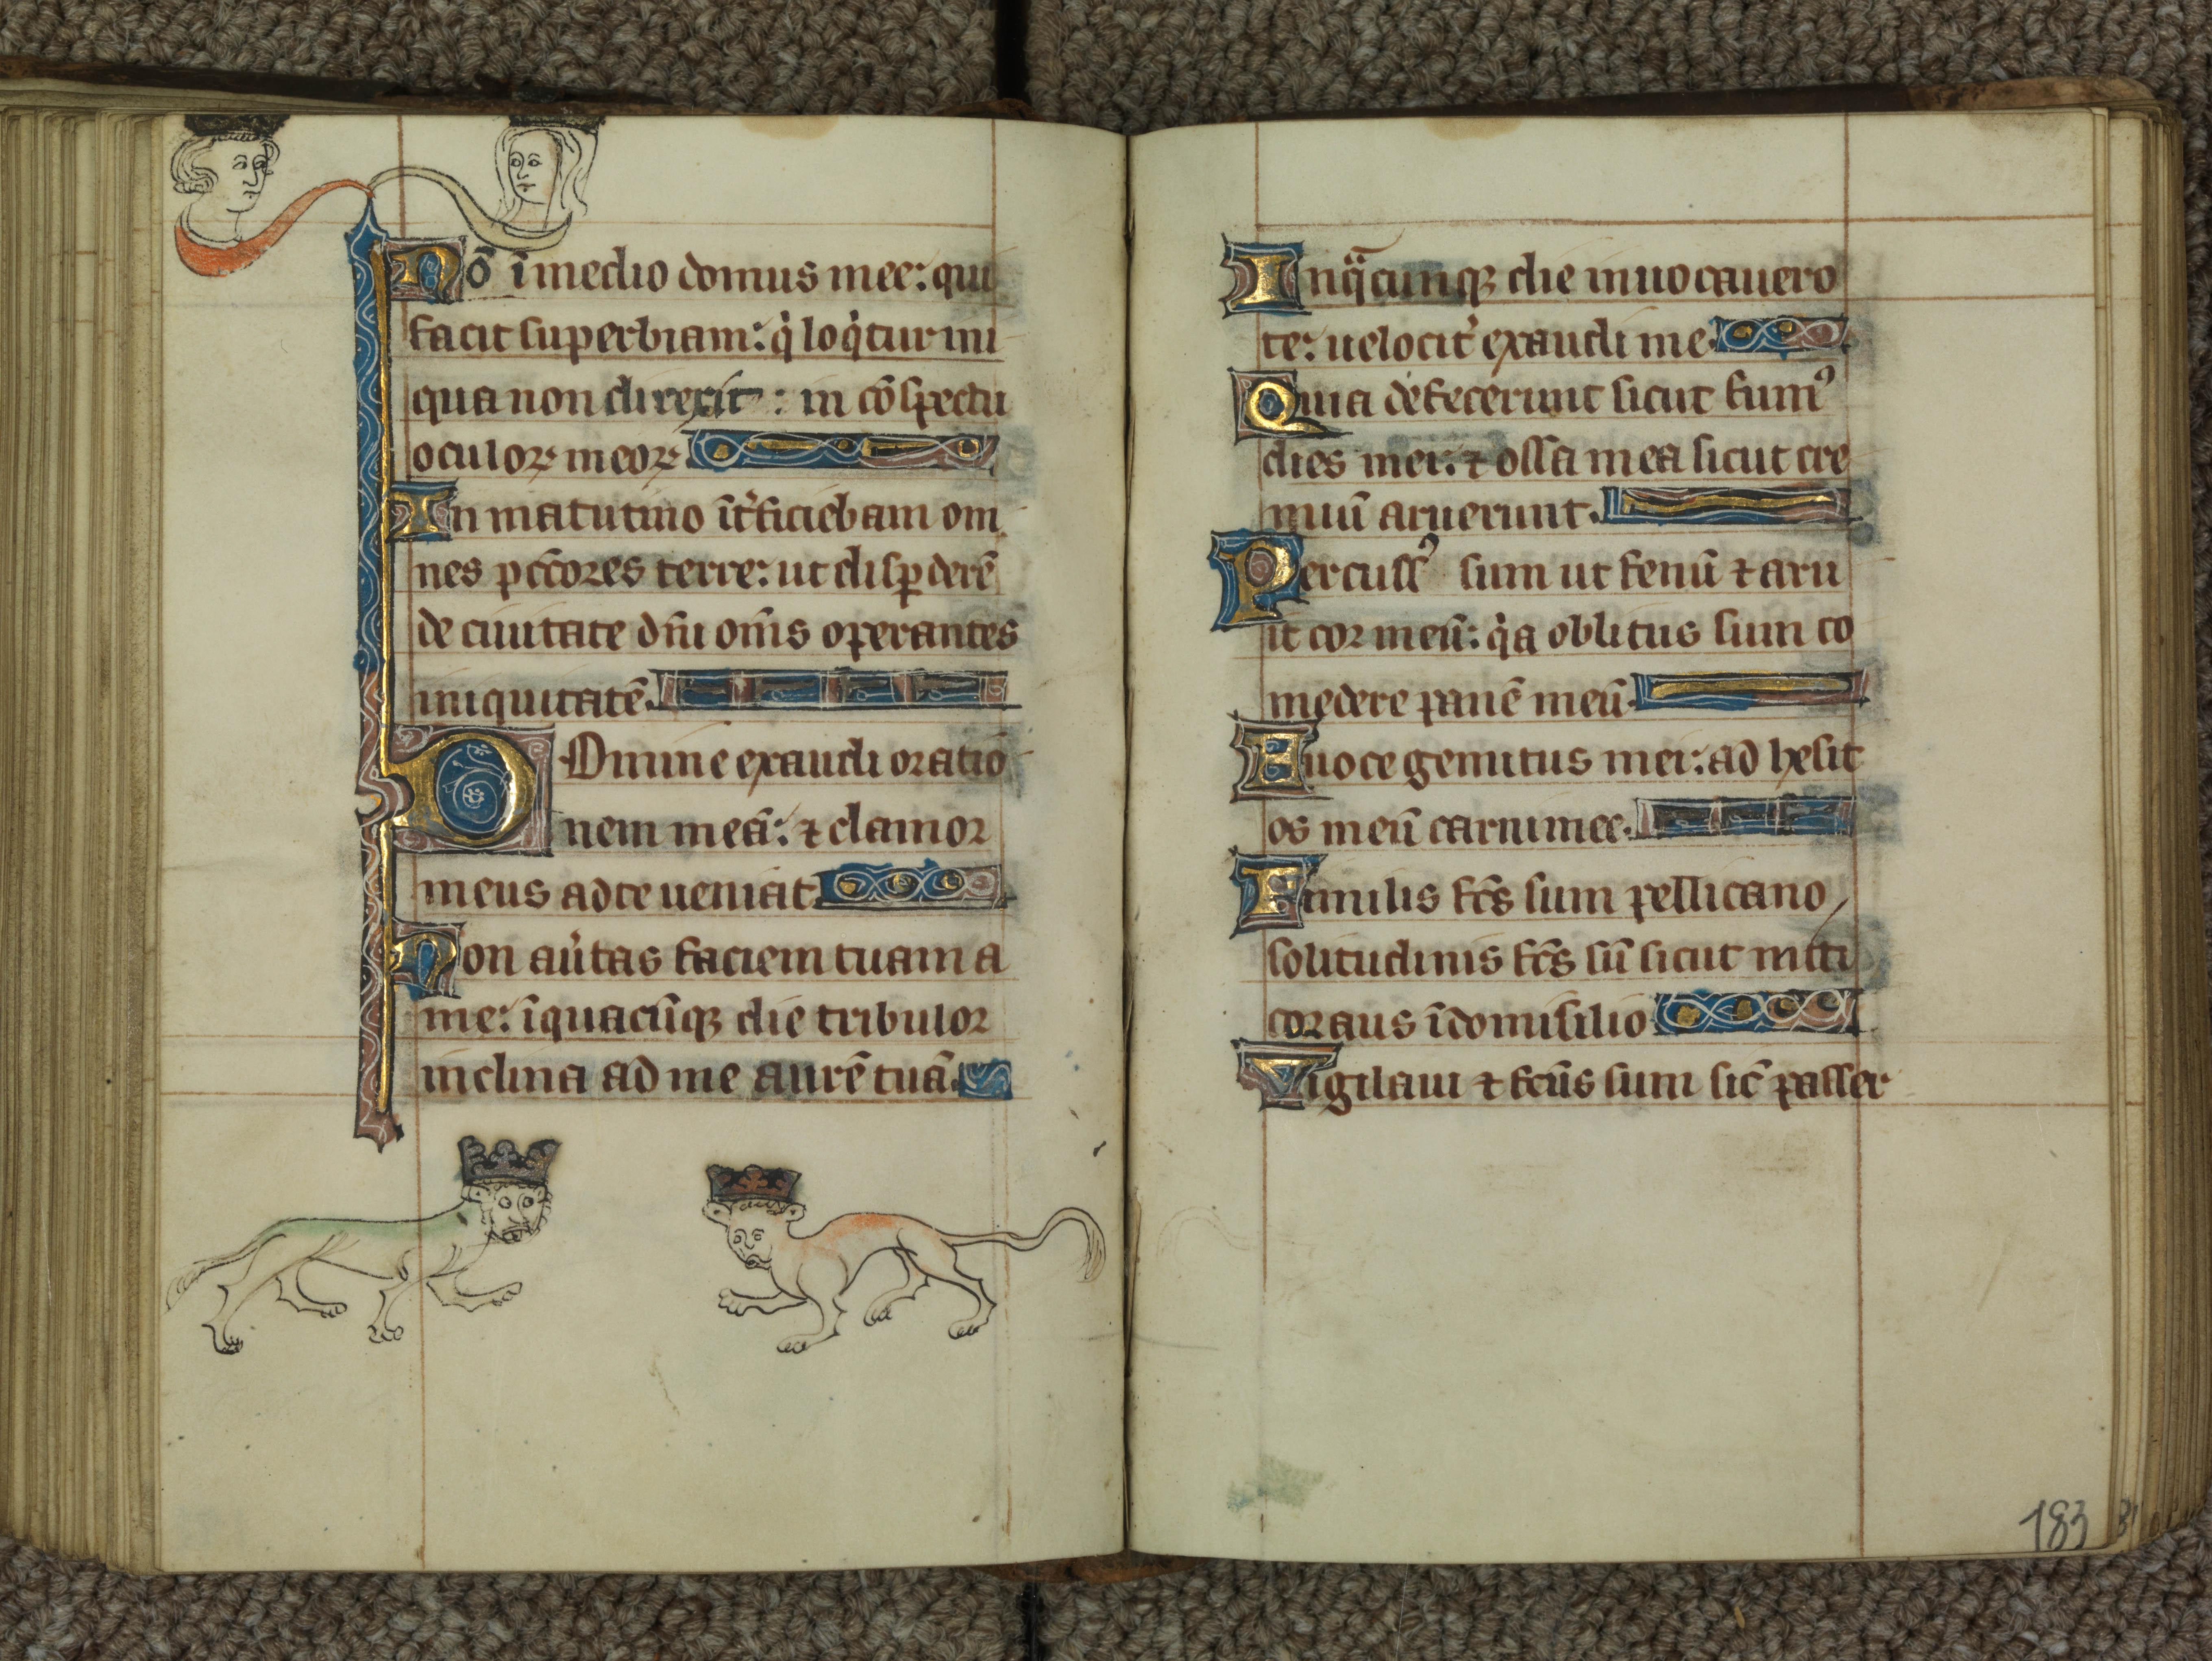 Nō ī medio domus mee: qui
facit superbiam: q̇ loq̇tur ini
qua non direxit: in cōspectu
oculoꝝ meoꝝ
In matutino īt̓ficiebam om
nes pc̄cores terre: ut disꝑderē
de ciuitate dn̄i om̄s operantes
iniquitatē.
DOmine exaudi oratio
nem meā: ⁊ clamor
meus ad te ueniat.
Non au̓tas faciem tuam a
me: ī quacūqꝫ die tribulor
inclina ad me aurē tuā.
In qᷓcunqꝫ die inuocauero
te: uelocit̓ exaudi me.
Quia defecerunt sicut fumꝰ
dies mei: ⁊ ossa mea sicut cre
miū aruerunt.
Percussꝰ sum ut fenū ⁊ aru
it cor meū: q̇a oblitus sum co
medere panē meū.
A uoce gemitus mei: adhesit
os meū carni mee.
Similis fc̄s sum pellicano
solitudinis fc̄s sū sicut nicti
corax ī domicilio
Vigilaui ⁊ fc̄us sum sic̄ passer
183